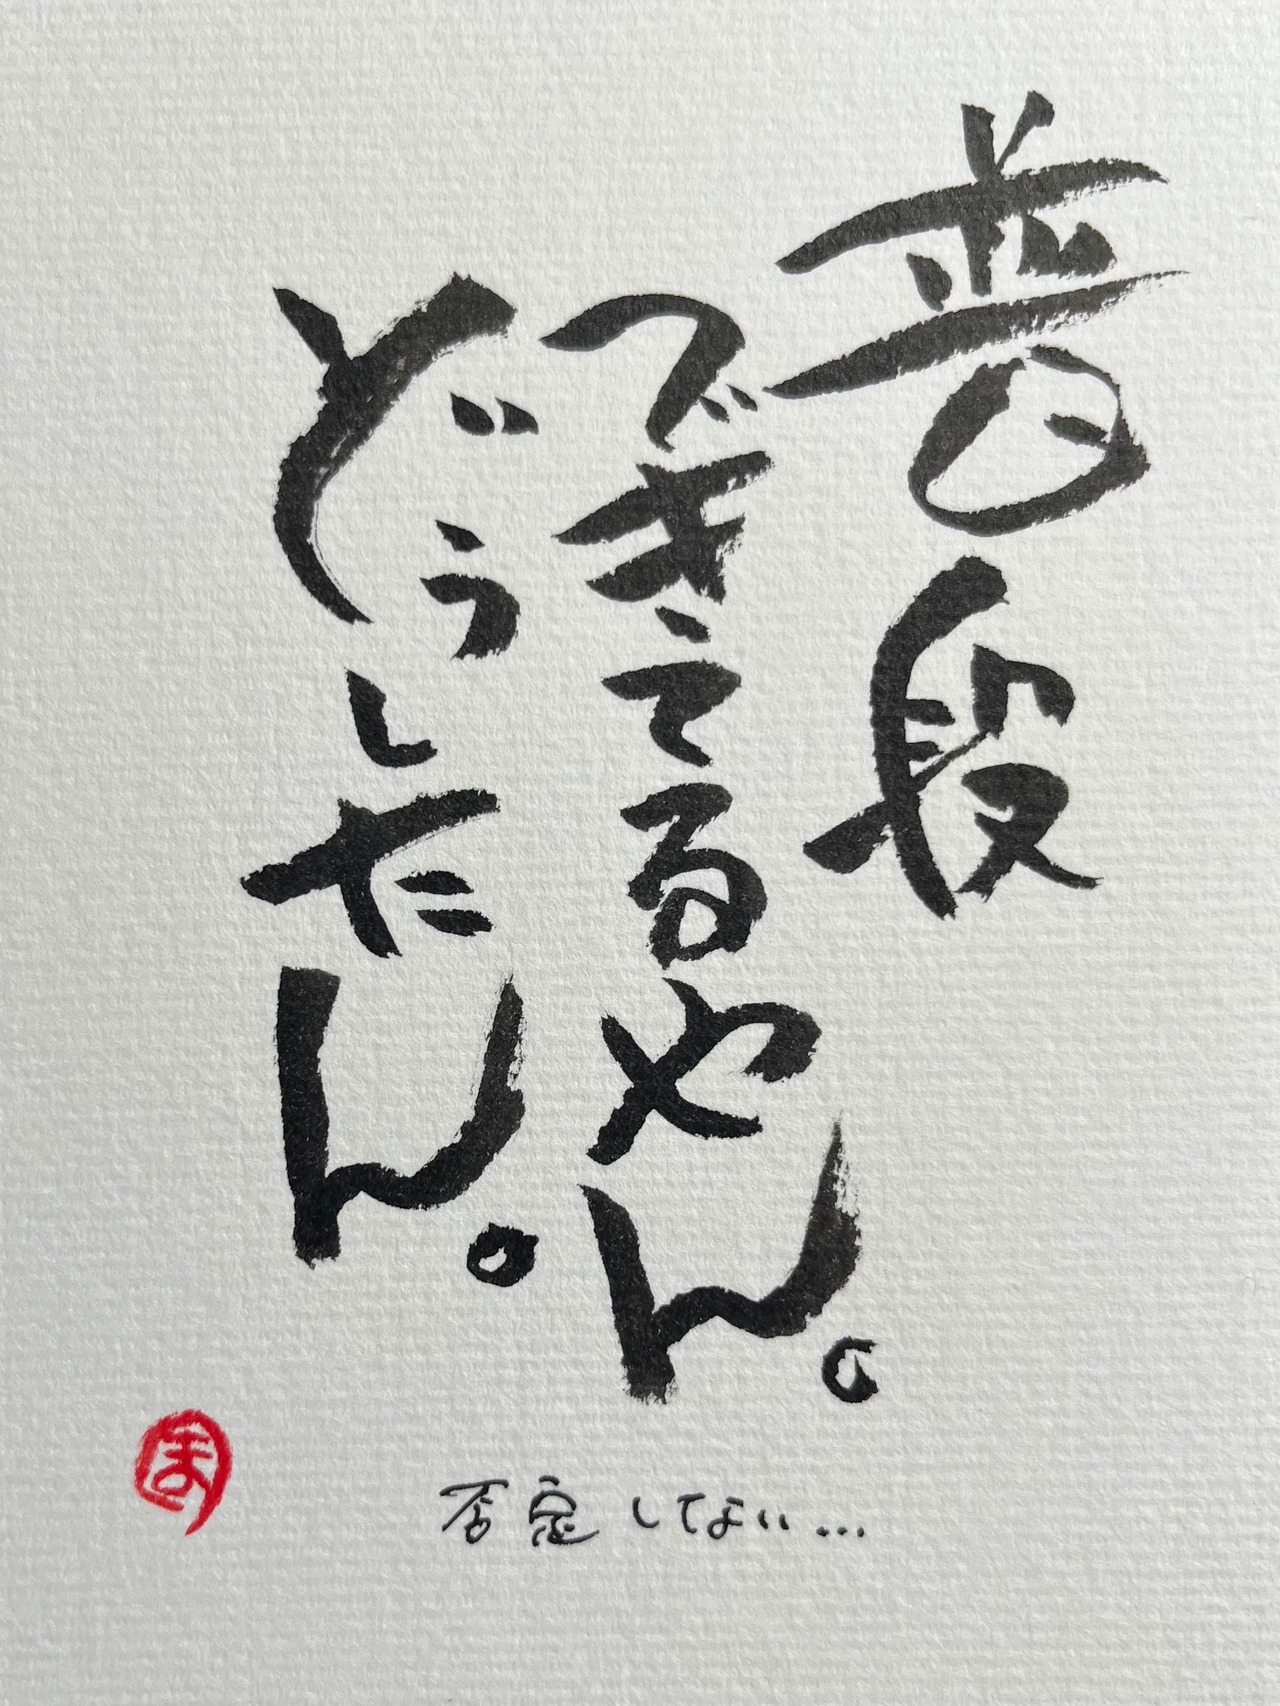 普段
できてるやん。
どうしたん。
否定してない…
ま